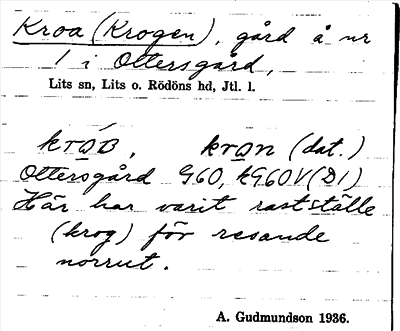 Kroa (Krogen), gård å nr
1 i Ottersgård,
Lits sn, Lits o. Rödöns hd, Jtl. l.
(dat.)
Ottersgård G60, kG60V(D1)
Här har varit rastställe
(krog) för resande
norrut.
A. Gudmundson 1936.